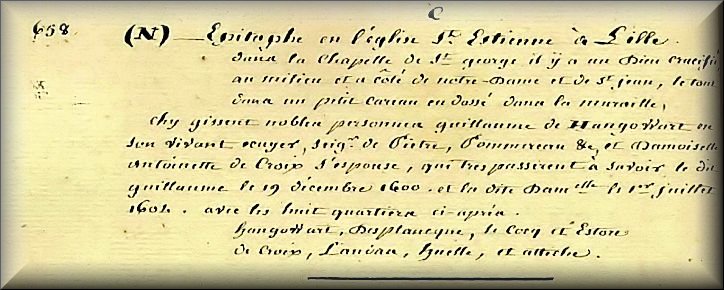 C
658 (N) — Epitaphe en l'église St. Estienne à Lille.
dans la Chapelle de St. george il y a un Dieu crucifié
au milieu et a côté de notre-Dame et de St. jean, le tout
dans un petit careau endossé dans la muraille,
Chy gissent nobles personnes guillaume de Hangowart en
son vivant ecuyer, seigr. de Pietre, Pommereau &c, et Damoiselle
Antoinette de Croix s'espouse, qui trespassèrent à savoir le dit
guillaume le 19 décembre 1600. et la dite Damelle le 1er juillet
1604. avec les huit quartiers ci-après.
hangowart, Desplancque, le Cocq et Estore
de Croix, Landas, huelle, et attiche.